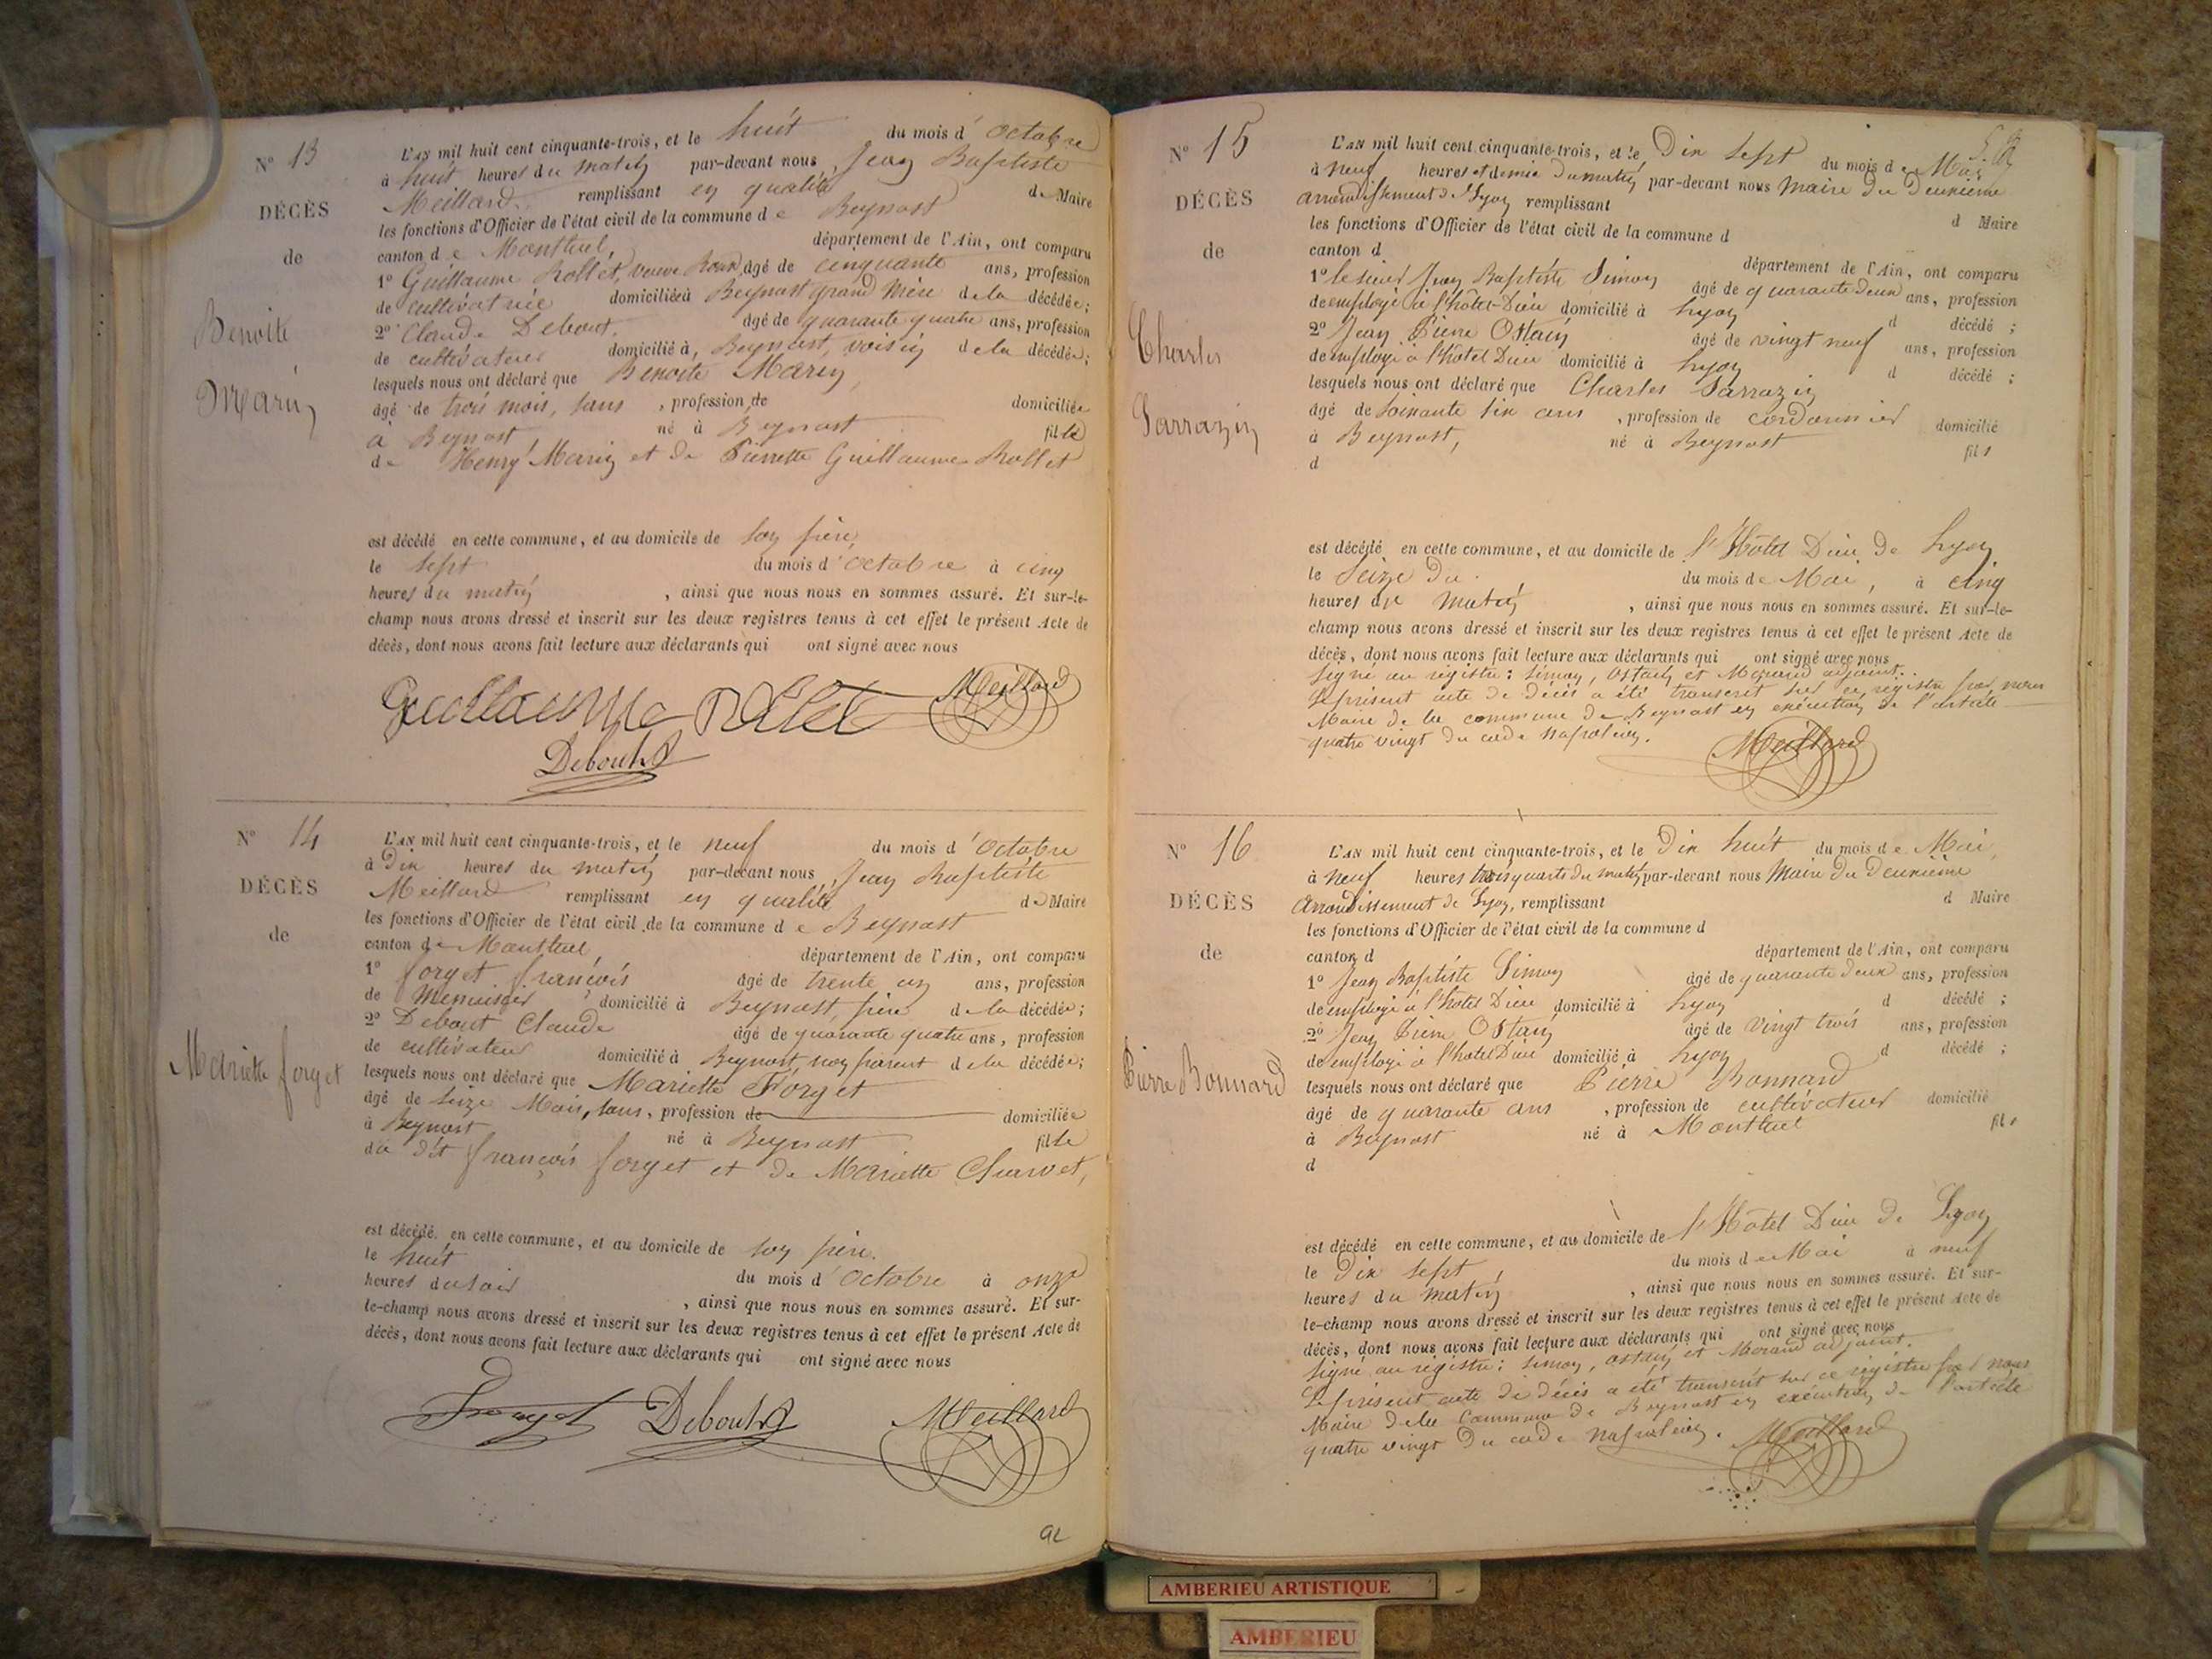 N° 13
DÉCÈS
de
Benoite
Marin
L'AN mil huit cent cinquante-trois, et le huit du mois d'octobre
à huit heures du matin par-devant nous Jean Baptiste
Meillard remplissant en qualité de Maire
les fonctions d'Officier de l'état civil de la commune de Beynost
canton de Montluel, département de l'Ain, ont comparu
1° Guillaume Rollet, veuve âgé de cinquante ans, profession
de cultivatrice domiciliée à Beynost grand mère de la décédée;
2° Claude Debout, âgé de quarante quatre ans, profession
de cultivateur domicilié à, Beynost, voisin de la décédée;
lesquels nous ont déclaré que Benoite Marin,
âgé de trois mois, sans, profession de domiciliée
à Beynost né à Beynost fille
de Henry Marin et de Pierrette Guillaume Rollet
est décédé en cette commune, et au domicile de son père,
le sept du mois d'octobre à cinq
heures du matin, ainsi que nous nous en sommes assuré. Et sur-le-
champ nous avons dressé et inscrit sur les deux registres tenus à cet effet le présent Acte de
décès, dont nous avons fait lecture aux déclarants qui ont signé avec nous
Guillaume Rollet Meillard
Debout
N° 14
DÉCÈS
de
Mariette forget
L'AN mil huit cent cinquante-trois, et le neuf du mois d'octobre
à dix heures du matin par-devant nous Jean Baptiste
Meillard remplissant en qualité de Maire
les fonctions d'Officier de l'état civil de la commune de Beynost
canton de Montluel département de l'Ain, ont comparu
1° forget françois âgé de trente un ans, profession
de Menuisier domicilié à Beynost, père de la décédée;
2° Debout Claude âgé de quarante quatre ans, profession
de cultivateur domicilié à Beynost, non parent de la décédée;
lesquels nous ont déclaré que Mariette Forget
âgé de seize Mois, sans, profession de domiciliée
à Beynost né à Beynost fille
du dit françois forget et de Mariette Charvet,
est décédé en cette commune, et au domicile de son père.
le huit du mois d'octobre à onze
heures du soir, ainsi que nous nous en sommes assuré. Et sur-
le-champ nous avons dressé et inscrit sur les deux registres tenus à cet effet le présent Acte de
décès, dont nous avons fait lecture aux déclarants qui ont signé avec nous
Forget Debout Meillard
92
N° 15
DÉCÈS
de
Charles
Sarrazin
L'AN mil huit cent cinquante-trois, et le Dix sept du mois de Mai
à neuf heures et demie du matin par-devant nous Maire du Deuxième
arrondissement de Lyon remplissant d Maire
les fonctions d'Officier de l'état civil de la commune d
canton d département de l'Ain, ont comparu
1° le sieur Jean Baptiste Simon âgé de quarante deux ans, profession
de employé à l'hôtel-Dieu domicilié à Lyon d décédé;
2° Jean Pierre Ostain âgé de vingt neuf ans, profession
de employé à l'hôtel Dieu domicilié à Lyon d décédé;
lesquels nous ont déclaré que Charles Sarrazin
âgé de soixante six ans, profession de cordonnier domicilié
à Beynost, né à Beynost fils
d
est décédé en cette commune, et au domicile de l'Hôtel Dieu de Lyon
le Seize du du mois de Mai, à cinq
heures du matin, ainsi que nous nous en sommes assuré. Et sur-le-
champ nous avons dressé et inscrit sur les deux registres tenus à cet effet le présent Acte de
décès, dont nous avons fait lecture aux déclarants qui ont signé avec nous
signé au registre: Simon, Ostain et Morand adjoint.
Le présent acte de décès a été transcrit sur ce registre par nous
Maire de la commune de Beynost en exécution de l'article
quatre vingt du code Napoléon.
Meillard
N° 16
DÉCÈS
de
Pierre Bonnard
L'AN mil huit cent cinquante-trois, et le Dix huit du mois de Mai,
à neuf heures trois quarts du matin par-devant nous Maire du Deuxième
Arrondissement de Lyon, remplissant d Maire
les fonctions d'Officier de l'état civil de la commune d
canton d département de l'Ain, ont comparu
1° Jean Baptiste Simon âgé de quarante deux ans, profession
de employé à l'hôtel Dieu domicilié à Lyon d décédé;
2° Jean Pierre Ostain âgé de vingt trois ans, profession
de employé à l'hôtel Dieu domicilié à Lyon d décédé;
lesquels nous ont déclaré que Pierre Bonnard
âgé de quarante ans, profession de cultivateur domicilié
à Beynost né à Montluel fils
d
est décédé en cette commune, et au domicile de l'Hôtel Dieu de Lyon
le Dix sept, du mois de Mai à neuf
heures du matin, ainsi que nous nous en sommes assuré. Et sur-
le-champ nous avons dressé et inscrit sur les deux registres tenus à cet effet le présent Acte de
décès, dont nous avons fait lecture aux déclarants qui ont signé avec nous
signé au registre: Simon, Ostain et Morand adjoint.
Le présent acte de décès a été transcrit sur ce registre par nous
Maire de la Commune de Beynost en exécution de l'article
quatre vingt du code Napoléon. Meillard
AMBERIEU ARTISTIQUE
AMBERIEU